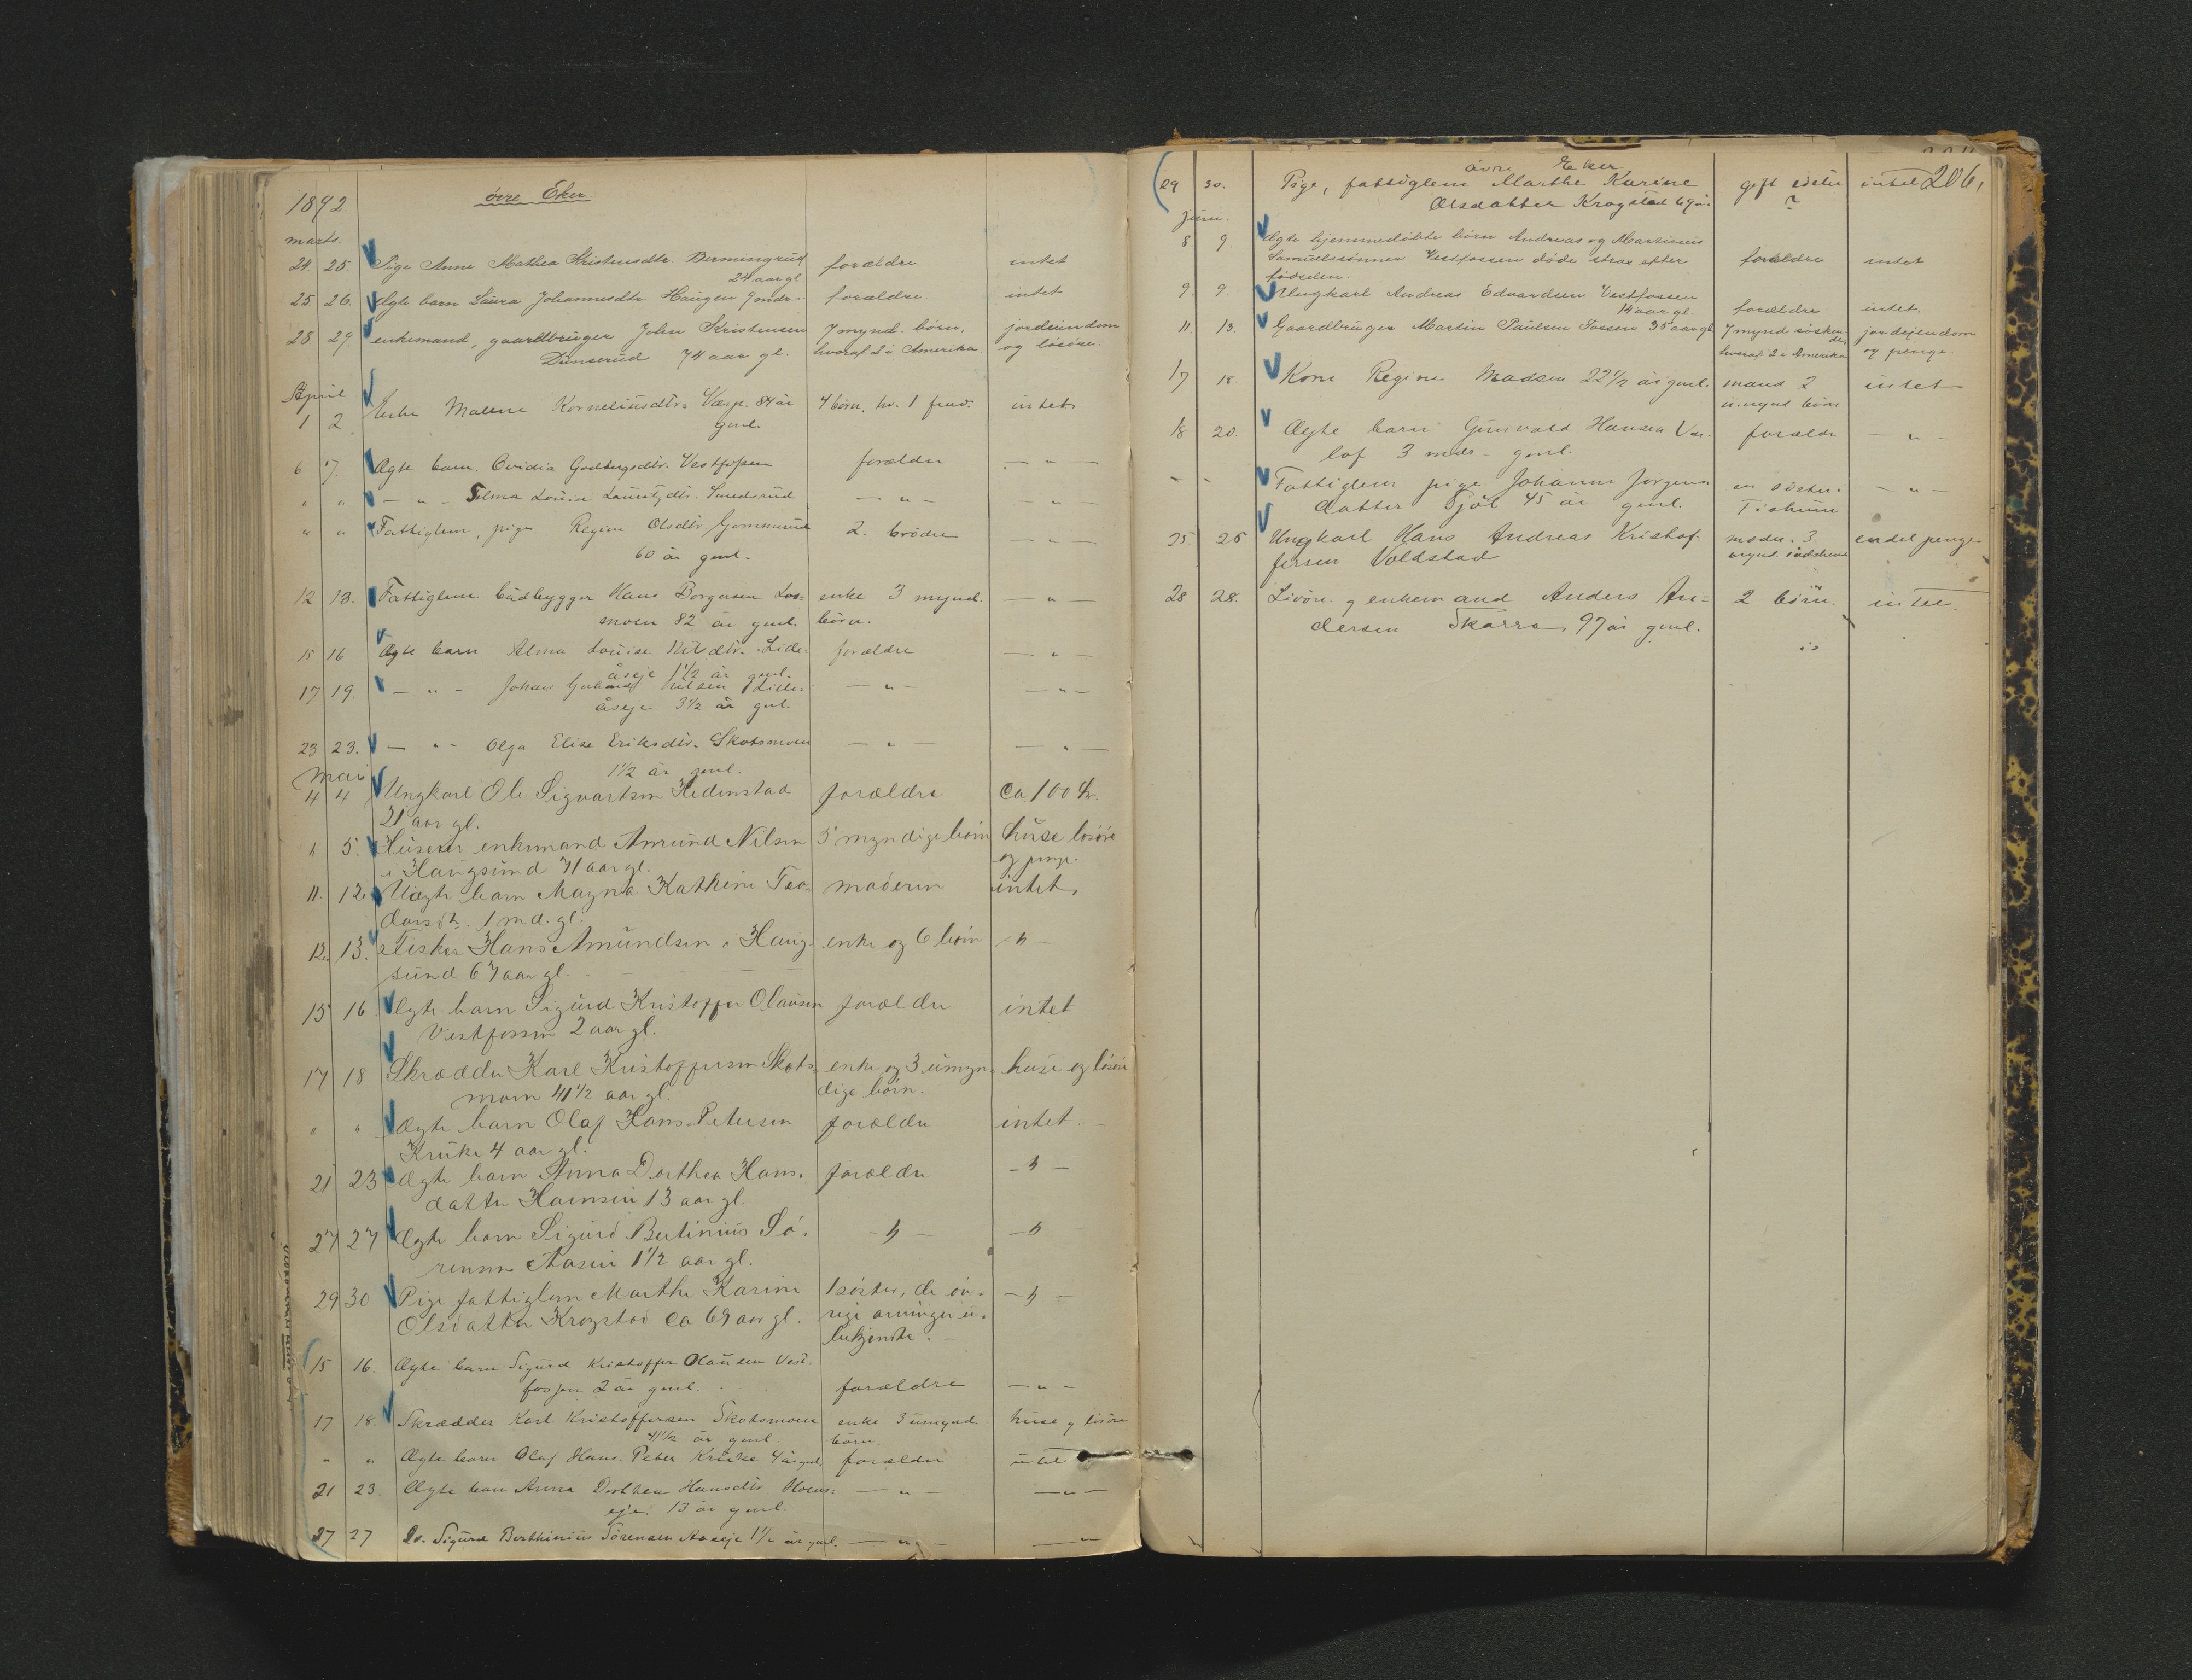 1892
øvre Eker
marts.
24 25 Pige Anne Mathea Kristensdtr. forældre intet
24 aar gl
25 26. Ægte barn Laura Johannesdtr. Haugen 9 mdr. forældre intet
28 29 enkemand, gaardbruger John Kristensen 7 mynd. børn, jordeiendom
Dunserud 74 aar gl. hvoraf 2 i Amerika og løsøre.
April
1 2 Enke Malene Korneliusdtr. 84 år 4 børn, hv. 1 intet
gml.
6 7. Ægte barn Ovidia Godbergsdtr. Vestfossen forældre — " —
" " — " — Louise Smedsrud — " — — " —
" " Fattiglem, pige Regine Olsdtr. 2. brødre — " —
60 år gml.
12 13. Fattiglem. Hans Borgersen Los= enke 3 mynd. — "
moen 82 år gml. børn.
15 16 Ægte barn Alma Louise forældre — " —
åseje 1½ år gml.
17 19. — " — Johan Nilsen — " — — " —
åseje 3½ år gml.
23 23. — " — Olga Elise Eriksdtr. Skotsmoen — " — — " —
1½ år gml.
mai
4 4 Ungkarl Ole Sigvartsen Hedenstad forældre Ca 100 kr.
21 aar gl.
" 5. enkemand Amund Nilsen 5 myndige børn huse løsøre
i Haugsund 71 aar gl. og penge.
11. 12. Uægte barn Magna Kathrine Teo- moderen intet
dorsdtr. 1 md. gl.
12. 13. Fisker Hans Amundsen i Haug- enke og 6 børn - " -
sund 67 aar gl.
15 16 Ægte barn Sigurd Kristoffer Olausen forældre intet
Vestfossen 2 aar gl.
17 18 Skrædder Karl Kristoffersen Skots- enke og 3 umyn- huse og løsøre
moen 41½ aar gl. dige børn.
" " Ægte barn Olaf Hans Petersen forældre intet.
Kruke 4 aar gl.
21 23 Ægte barn Anna Dorthea Hans- forældre - " -
datter 13 aar gl.
27 27 Ægte barn Sigurd Bertinius Sø- - " - - "
rensen Aasein 1½ aar gl.
29 30 Pige fattiglem Marthe Karine 1 søster, de øv- - " -
Olsdatter Krogstad ca 69 aar gl. rige arvinger u-
bekjendte.
15 16. Ægte barn Sigurd Kristoffer Olausen Vest-
fossen 2 år gml. forældre — " —
17 18. Skrædder Karl Kristoffersen Skotsmoen enke 3 umynd. huse og løsøre
41½ år gml. børn.
" " Ægte barn Olaf Hans Peter Kruke 4 år gml. forældre intet
21 23. Ægte barn Anna Dorthea Hansdtr. — " — — " —
eje. 13 år gml.
27 27 Do. Sigurd Berthinius Sørensen Aaseje 1½ år gml. — " — — " —
øvre Eker
29 30. Pige, fattiglem Marthe Karine gift søster intet 206,
Olsdatter Krogstad 69 år. ?
Juni.
8. 9. Ægte hjemmedøbte børn Andreas og Martinius
Samuelssønner Vestfossen døde strax efter forældre intet
fødselen.
9. 9. Ungkarl Andreas Edvardsen Vestfossen
14 aar gl. forældre intet.
11. 13. Gaardbruger Martin Paulsen Fossen 35 aar gl 7 mynd søsken- jordejendom
de, hvoraf 2 i Amerika og penge.
17 18 Kone Regine Madsen 22½ år gml. mand 2 intet
u.mynd børn
18 20. Ægte barn Gunvald Hansen forældr — " —
3 mdr. gml.
- - Fattiglem pige Johanne Jørgens= en søster i — " —
datter 45 år gml. Fiskum
25 26 Ungkarl Hans Andreas Kristof- moder. 3 endel penge
fersen Voldstad mynd. sødskende
28 28. og enkemand Anders An= 2 børn. intet.
dersen Skarra 97 år gml.